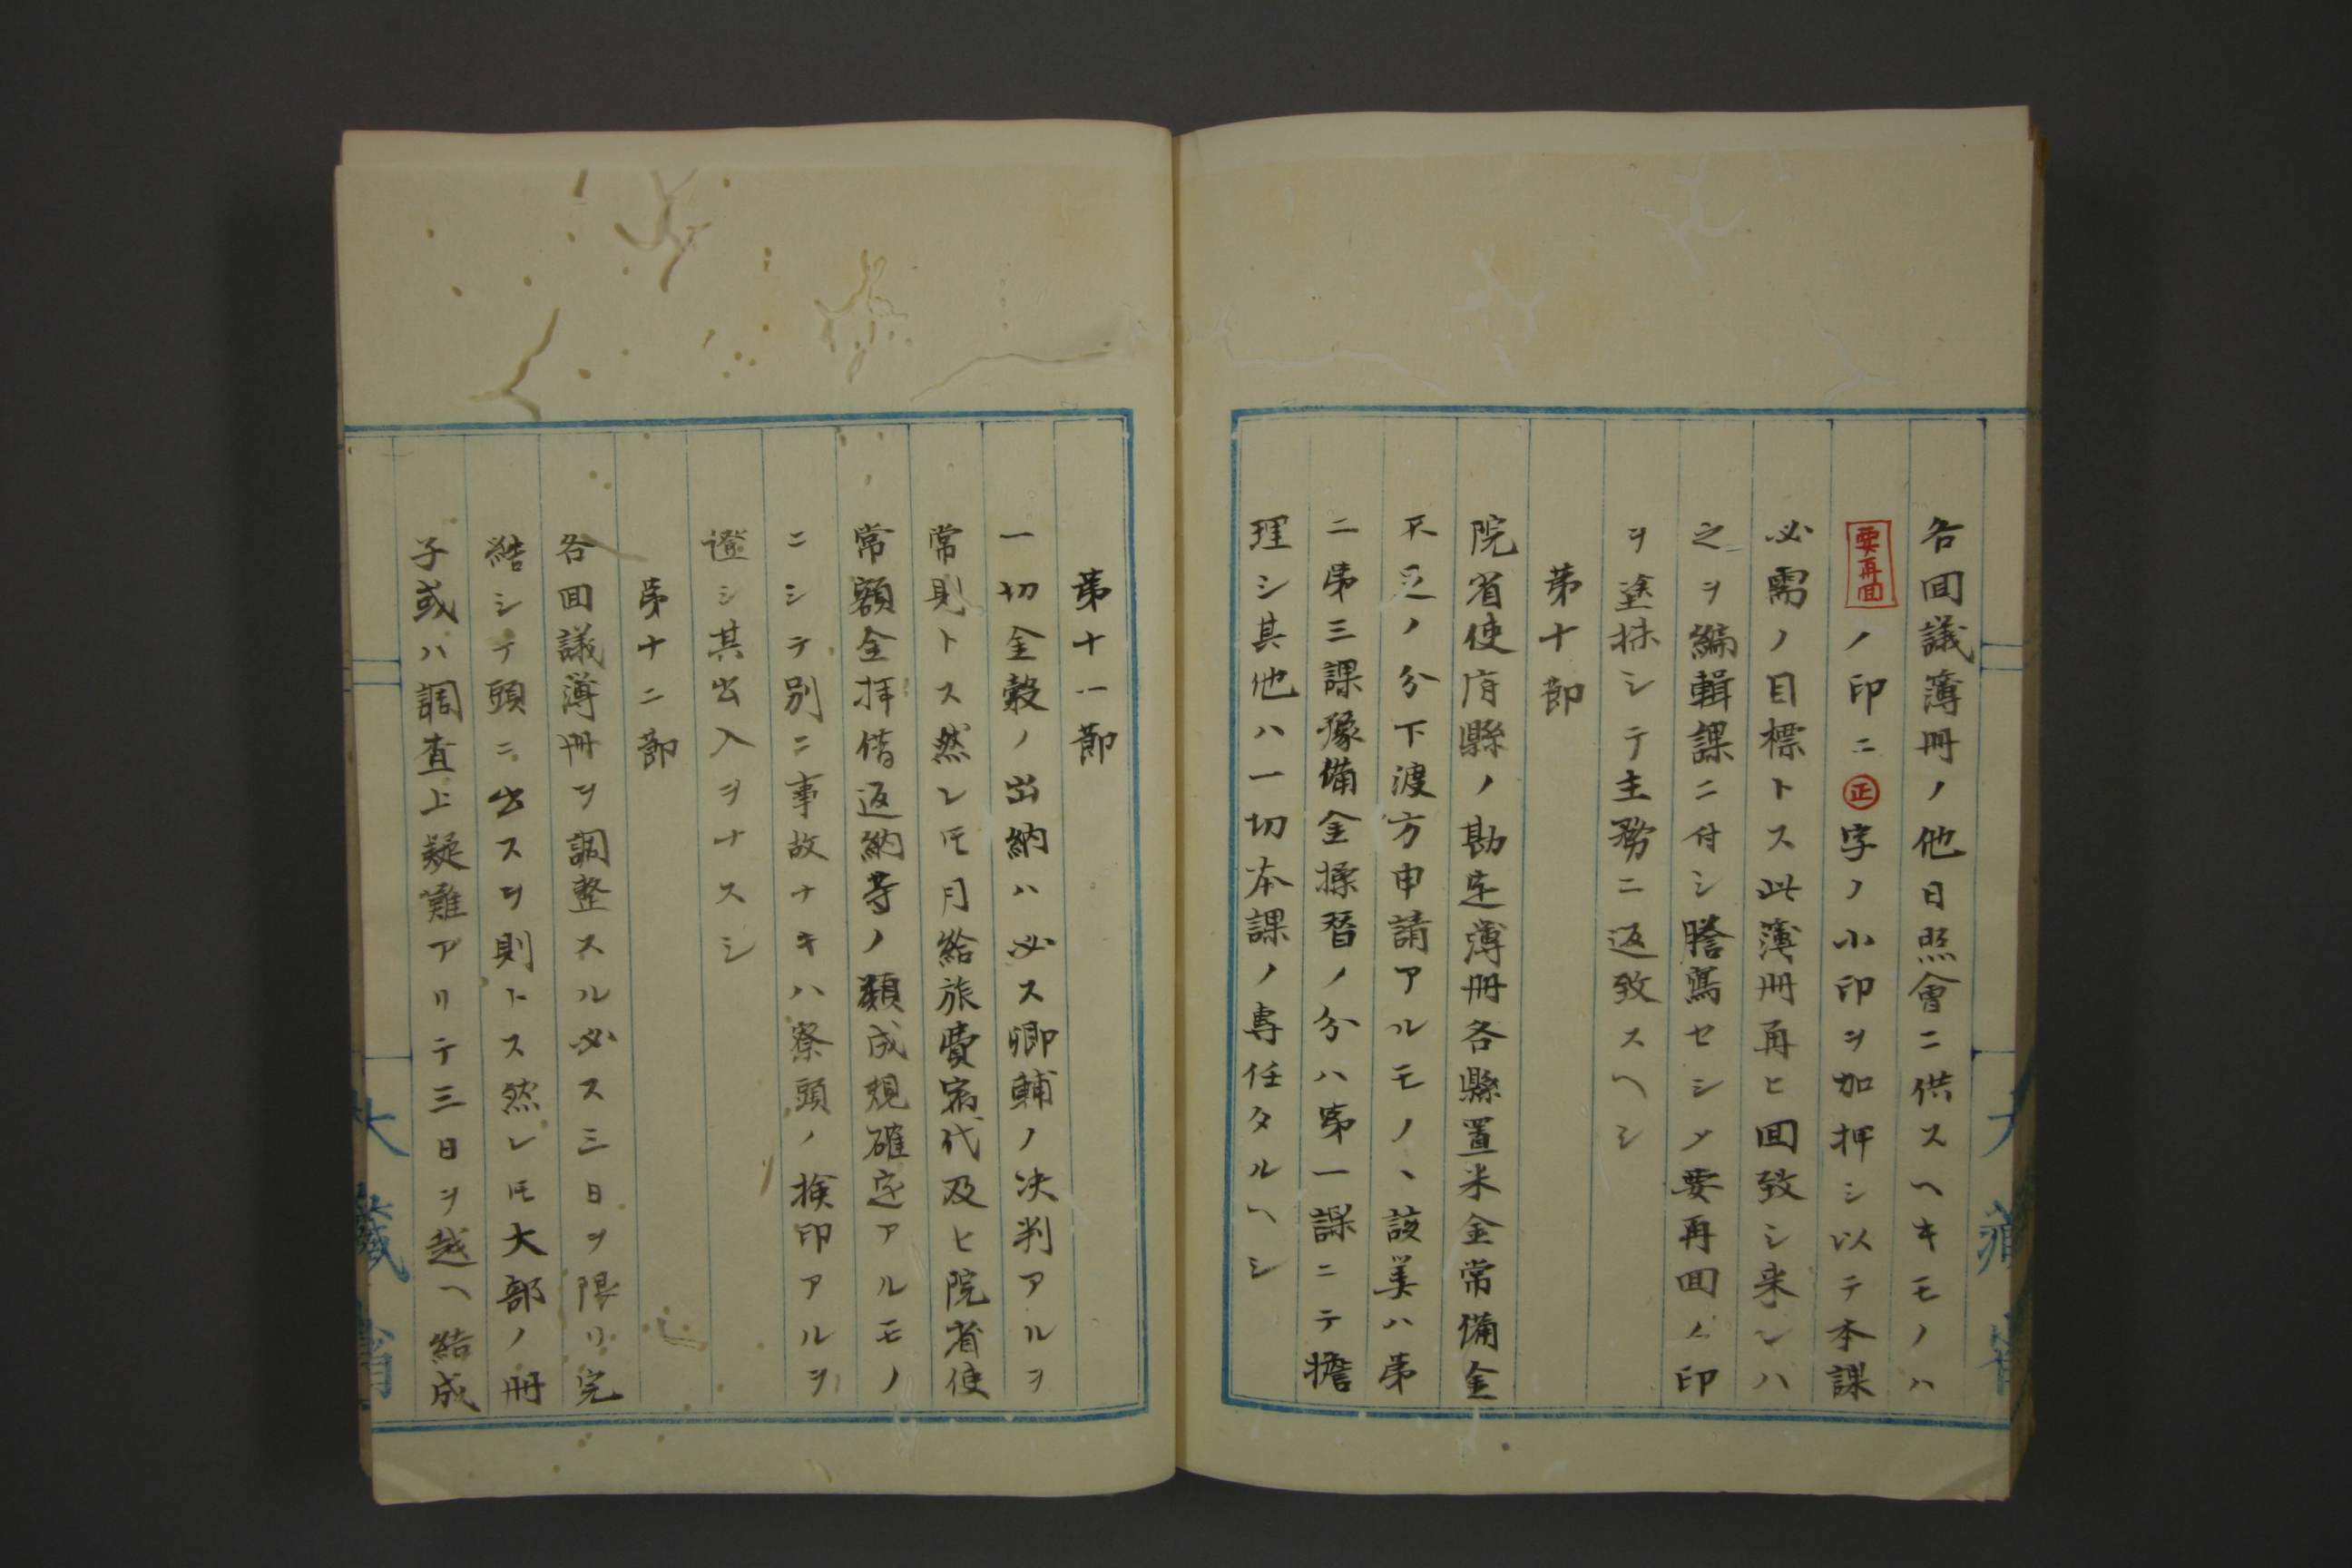 各回議簿冊ノ他日照會ニ供スヘキモノハ
要再回ノ印ニ正字ノ小印ヲ加押シ以テ本課
必需ノ目標トス此簿冊再ヒ回致シ来レハ
之ヲ編輯課ニ付シ謄寫セシメ要再回ノ印
ヲ塗抹シテ主務ニ返致スヘシ
第十節
院省使府縣ノ勘定簿冊各縣置米金常備金
不足ノ分下渡方申請アルモノヽ該算ハ第
二第三課豫備金操替ノ分ハ第一課ニテ擔
理シ其他ハ一切本課ノ專任タルヘシ
第十一節
一切金穀ノ出納ハ必ス卿輔ノ决判アルヲ
常則トス然レ𪜈月給旅費宿代及ヒ院省使
常額金拝借返納等ノ類成規確定アルモノ
ニシテ別ニ事故ナキハ寮頭ノ検印アルヲ
證シ其出入ヲナスシ
第十二節
各回議簿冊ヲ調整スル必ス三日ヲ限リ完
結シテ頭ニ出スヲ則トス然レ𪜈大部ノ冊
子或ハ調査上疑難アリテ三日ヲ越ヘ結成
大藏省